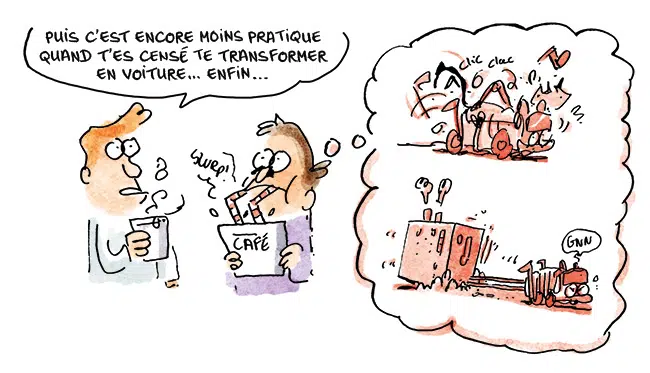 PUIS C'EST ENCORE MOINS PRATIQUE
QUAND T'ES CENSÉ TE TRANSFORMER
EN VOITURE... ENFIN...
CLIC CLAC
SLURP!
CAFÉ
GNN